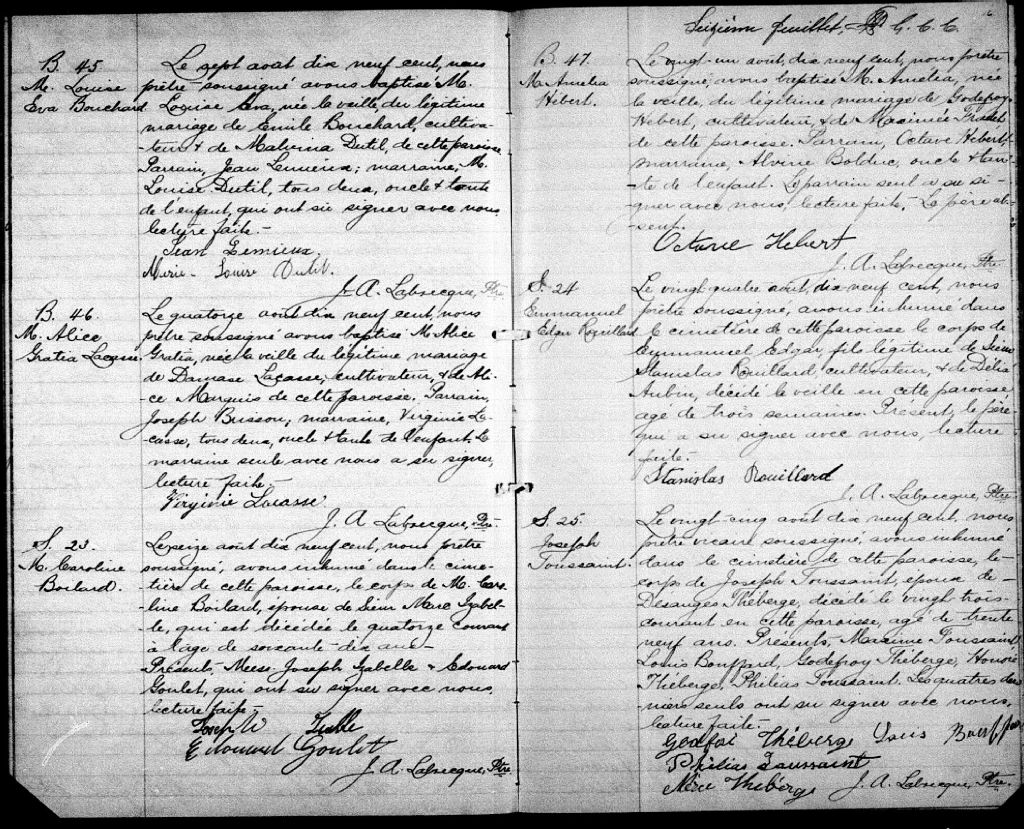 B. 45
M. Louise
Eva Bouchard
Le sept août dix neuf cent, nous
prêtre soussigné avons baptisé M.
Louise Eva, née la veille, du légitime
mariage de Emile Bouchard, cultiva-
teur & de Malvina Dutil, de cette paroisse
Parrain, Jean Lemieux; marraine, M.
Louise Dutil, tous deux, oncle & tante
de l'enfant, qui ont su signer avec nous
lecture faite.-
Jean Lemieux
Marie-Louise Dutil.
J. A. Labrecque, Ptre
B. 46
M. Alice
Gratia Lacasse
Le quatorze août dix neuf cent, nous
prêtre soussigné avons baptisé M. Alice
Gratia, née la veille du légitime mariage
de Damase Lacasse, cultivateur, & de Ali-
ce Marquis de cette paroisse. Parrain,
Joseph Busson, marraine, Virginie La-
casse, tous deux, oncle & tante de l'enfant. La
marraine seule avec nous a su signer,
lecture faite.-
Virginie Lacasse
J. A. Labrecque, Ptre
S. 23.
M. Caroline
Boilard.
Le seize août dix neuf cent, nous prêtre
soussigné, avons inhumé dans le cime-
tière de cette paroisse, le corps de M. Caro-
line Boilard, épouse de Sieur Marc Izabel-
le, qui est décédée le quatorze courant
à l'âge de soixante-dix ans-
Présents, Mess. Joseph Izabelle & Edouard
Goulet, qui ont su signer avec nous,
lecture faite-
Joseph
Edouard Goulet
J. A. Labrecque, Ptre
Seizième feuillet, G. C. C.
B. 47.
M. Amelia
Hébert.
Le vingt-un août, dix neuf cent, nous prêtre
soussigné, avons baptisé M. Amelia, née
la veille, du légitime mariage de Godefroy
Hébert, cultivateur, & de Maximée
de cette paroisse. Parrain, Octave Hébert,
marraine, Alvine Bolduc, oncle & tan-
te de l'enfant. Le parrain seul a su si-
gner avec nous, lecture faite,- Le père ab-
sent.
Octave Hebert
J. A. Labrecque, Ptre
S. 24
Emmanuel
Edgar Rouillard
Le vingt-quatre août, dix neuf cent, nous
prêtre soussigné, avons inhumé dans
le cimetière de cette paroisse le corps de
Emmanuel Edgar, fils légitime de Sieur
Stanislas Rouillard cultivateur, & de Délia
Aubin, décédé la veille en cette paroisse
agé de trois semaines. Présent, le père
qui a su signer avec nous, lecture
faite-
Stanislas Rouillard
J. A. Labrecque, Ptre
S. 25.
Joseph
Toussaint.
Le vingt-cinq août dix neuf cent, nous
prêtre vicaire soussigné, avons inhumé
dans le cimetière de cette paroisse, le-
corps de Joseph Toussaint, époux de-
Désanges Théberge, décédé le vingt trois-
courant en cette paroisse, agé de trente
neuf ans. Présents, Maxime Toussaint,
Louis Bouffard, Godefroy Théberge, Honoré
Théberge, Philias Toussaint. Les quatres der-
niers seuls ont su signer avec nous,
lecture faite-
Théberge Louis Bouffard
Philias Toussaint
Théberge J. A. Labrecque, Ptre.